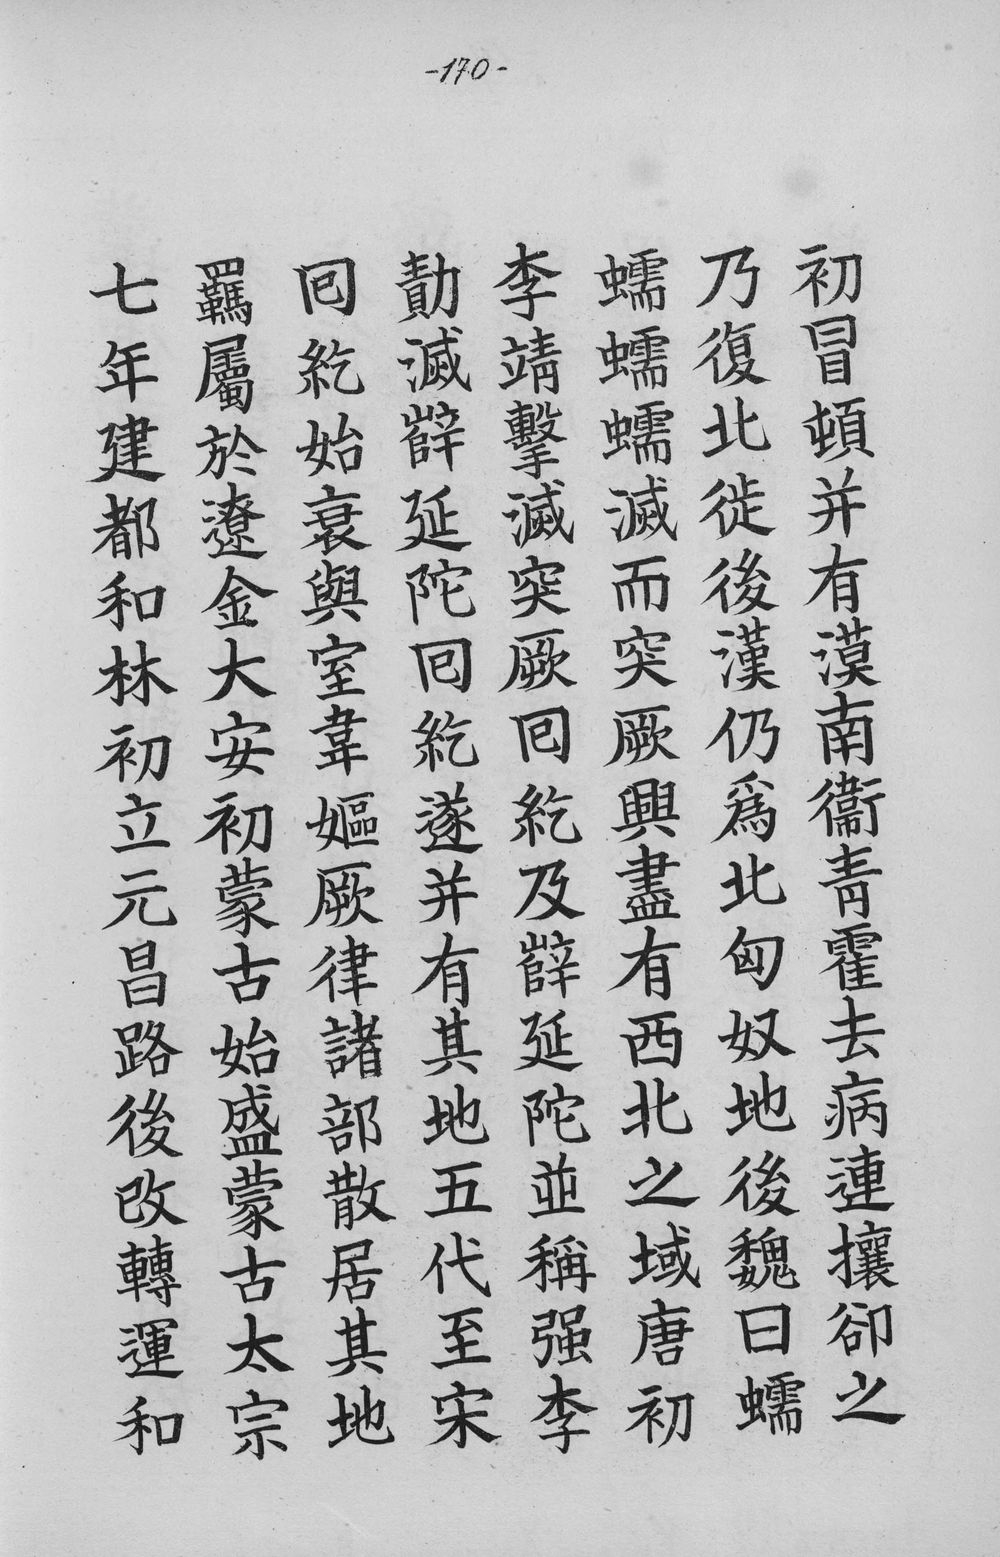 -170-
初冒頓并有漠南衞青霍去病連攘卻之
乃復北徙後漢仍爲北匈奴地後魏曰蠕
蠕蠕蠕滅而突厥興盡有西北之域唐初
李靖擊滅突厥回紇及薛延陀並稱强李
勣滅薛延陀回紇遂并有其地五代至宋
回紇始衰與室韋嫗厥律諸部散居其地
羈屬於遼金大安初蒙古始盛蒙古太宗
七年建都和林初立元昌路後改轉運和